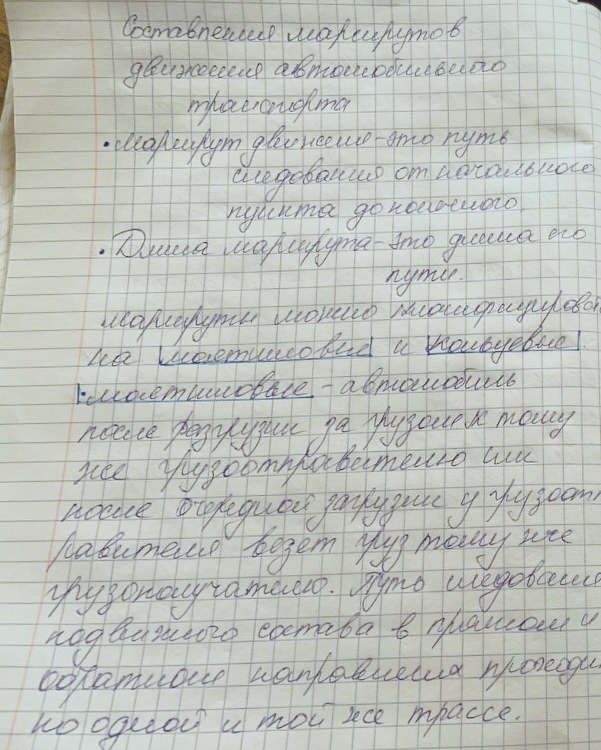 Составления маршрутов
движения автомобильного
транспорта
• Маршрут движения - это путь
следования от начального
пункта до конечного.
• Длина маршрута - это длина его
пути.
Маршруты можно классифицироват
на маятниковые и кольцевые.
• маятниковые - автомобиль
после разгрузки за грузом к тому
же грузоотправителю или
после очередной загрузки у грузоотп
равителя везет груз тому же
грузополучателю. Путь следования
подвижного состава в прямом и
обратном направлениях проходи
по одной и той же трассе.